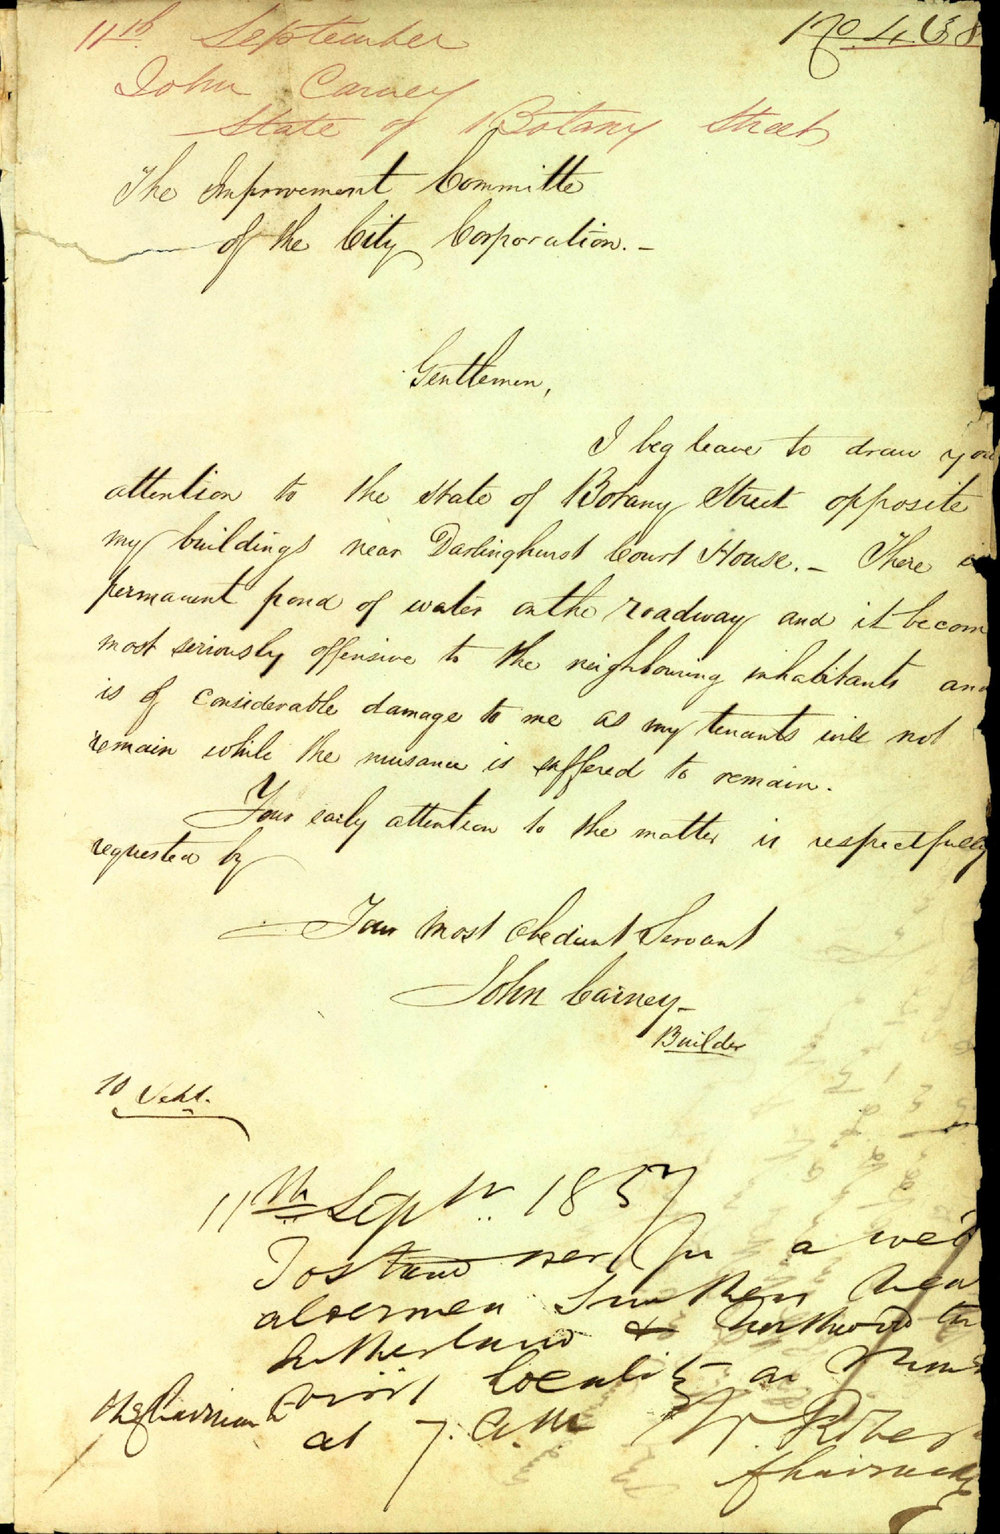 11th September
No 468
John Carney
State of Botany Street
The Improvement Committe
of the City Corporation. –
Gentlemen,
I beg leave to draw you
attention to the state of Botany Street opposite
my buildings near Darlinghurst Court House. – There is
permanent pond of water on the roadway and it becom
most seriously offensive to the neighbouring inhabitants and
is of considerable damage to me as my tenants will not
remain while the nuisance is suffered to remain.
Your early attention to the matter is respectfully
requested by
Your Most Obedient Servant
John Carney –
Builder
10 Sept.
11th Septr. 1857
To stand over for a week
aldermen
Sutherland & Northwood to
The Chairman to visit locality on
at 7. am W. Rober
Chairman